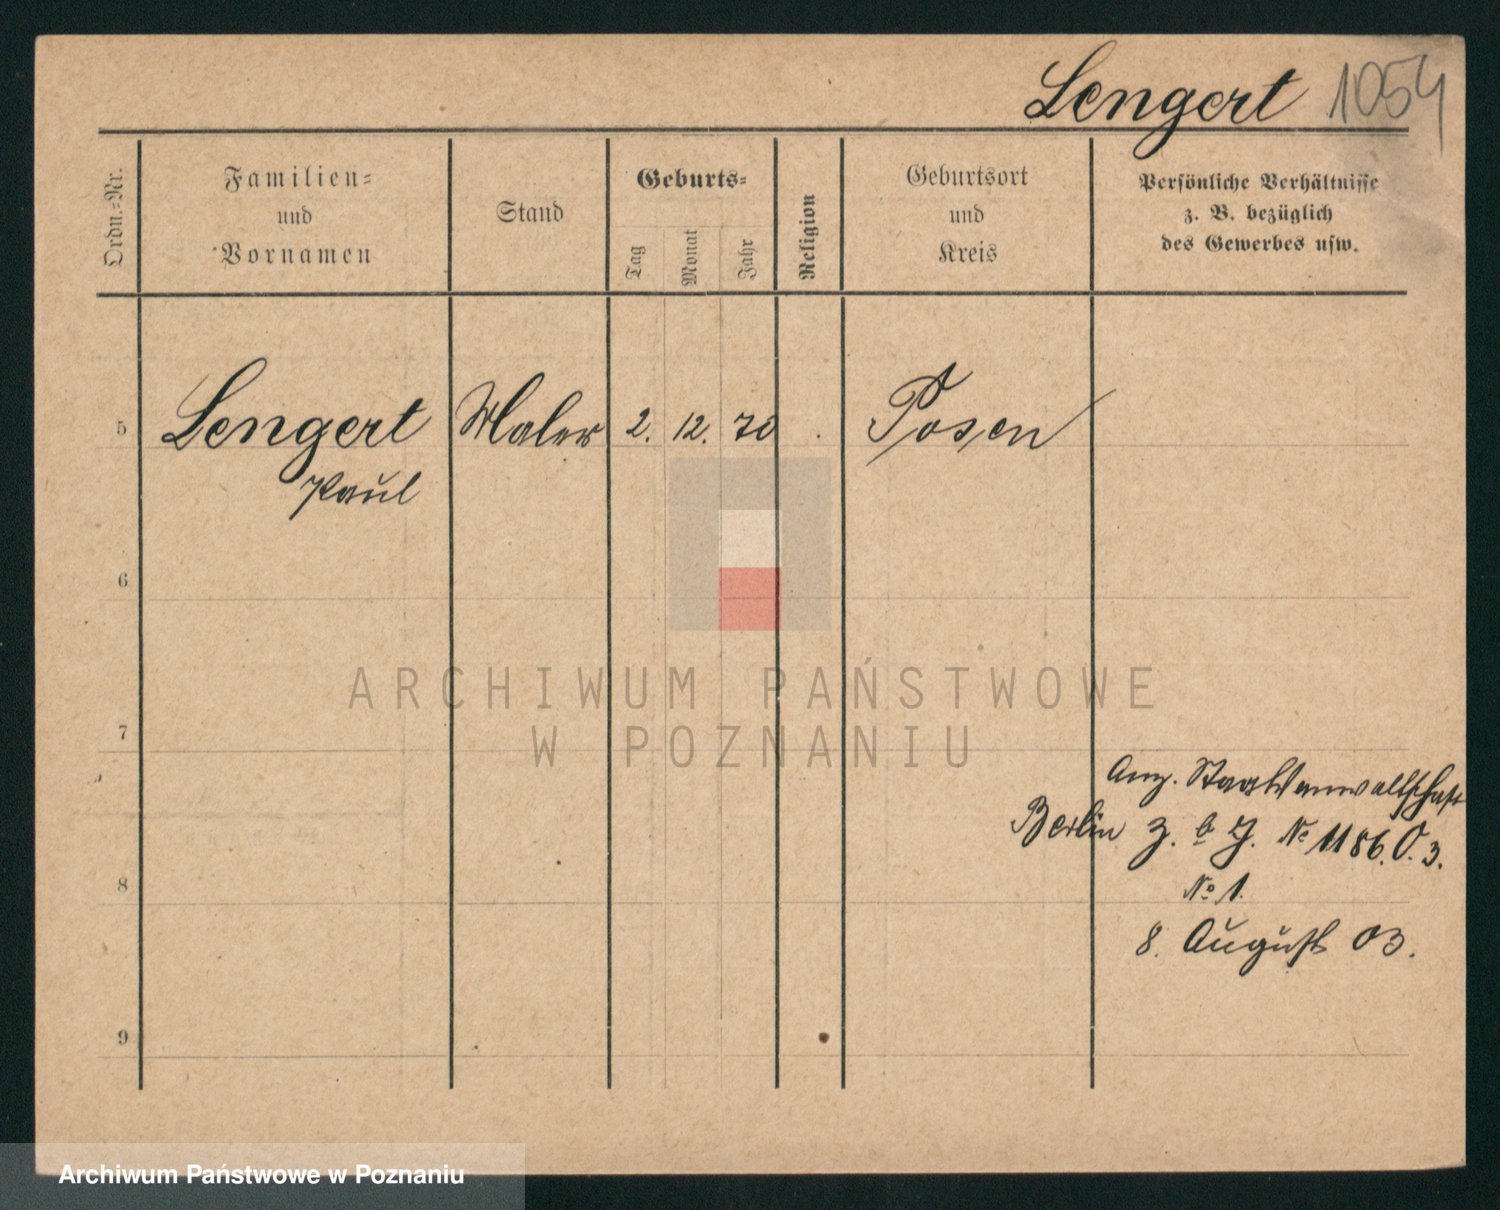 Lengert 1054
Ordn.-Nr.
Familien-
und
Vornamen
Stand
Geburts-
Tag
Monat
Jahr
Religion
Geburtsort
und
Kreis
Persönliche Verhältnisse
z. B. bezüglich
des Gewerbes usw.
5 Lengert Maler 2. 12. 70 . Posen
Paul
6
ARCHIWUM PAŃSTWOWE
W POZNANIU
7
Anz. Staatsanwaltschaft
Berlin J. No 1186. O. 3.
8
No 1.
8. August 03.
9
Archiwum Państwowe w Poznaniu